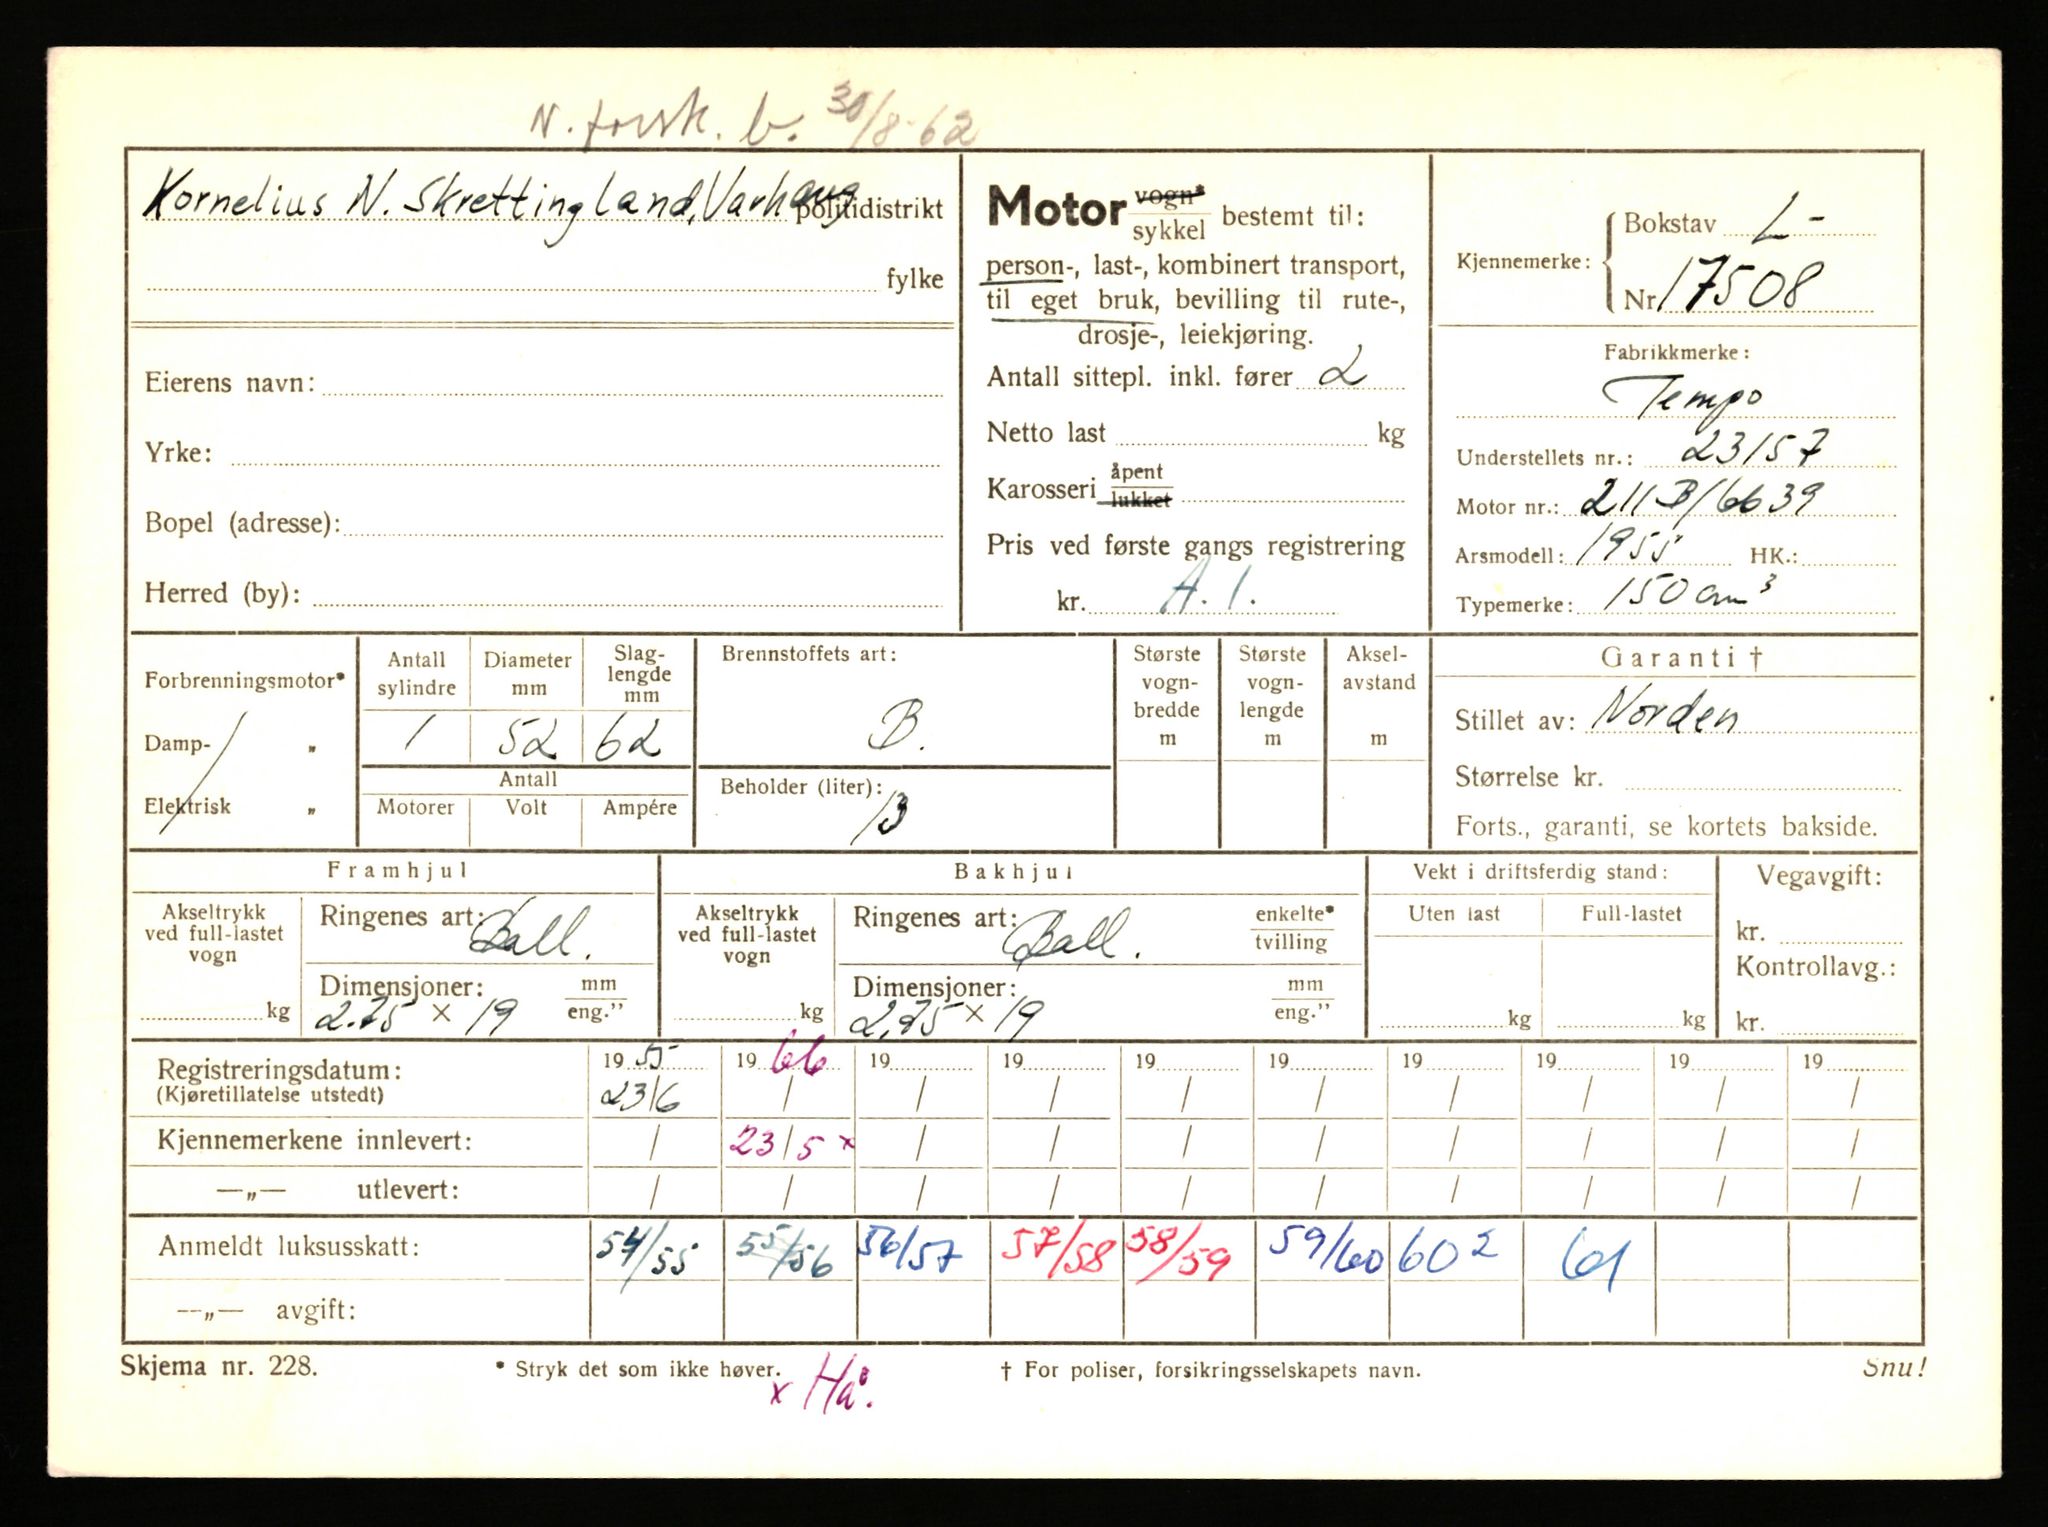 N. forsk. b. 30/8-62
Kornelius N. Skrettingland, Varhaug politidistrikt
fylke
Eierens navn:
Yrke:
Bopel (adresse):
Herred (by):
Motor vogn* sykkel bestemt til:
person-, last-, kombinert transport,
til eget bruk, bevilling til rute-,
drosje-, leiekjøring.
Antall sittepl. inkl. fører 2
Netto last kg
Karosseri åpent lukket
Pris ved første gangs registrering
kr. A. 1.
Kjennemerke: Bokstav L-
Nr 17508
Fabrikkmerke:
Tempo
Understellets nr.: 23157
Motor nr.: 211 B/6639
Arsmodell: 1955 HK.:
Typemerke: 150 cm³
Forbrenningsmotor*
Damp- „
Elektrisk „
Antall sylindre
Diameter mm
Slag-lengde mm
1 52 62
Antall
Motorer Volt Ampére
Brennstoffets art:
B.
Beholder (liter):
13
Største vogn-bredde m
Største vogn-lengde m
Aksel-avstand m
Garanti †
Stillet av: Norden
Størrelse kr.
Forts., garanti, se kortets bakside.
Framhjul
Akseltrykk ved full-lastet vogn
kg
Ringenes art: Ball.
Dimensjoner: mm eng.”
2.75 × 19
Bakhjul
Akseltrykk ved full-lastet vogn
kg
Ringenes art: Ball. enkelte* tvilling
Dimensjoner: mm eng.”
2.75 × 19
Vekt i driftsferdig stand:
Uten last Full-lastet
kg kg
Vegavgift:
kr.
Kontrollavg.:
kr.
Registreringsdatum: 19 55 19 66 19 19 19 19 19 19 19 19
(Kjøretillatelse utstedt) 23/6 / / / / / / / / /
Kjennemerkene innlevert: / 23/5 x / / / / / / / /
—„— utlevert: / / / / / / / / / /
Anmeldt luksusskatt: 54/55 55/56 56/57 57/58 58/59 59/60 60 2 61
—„— avgift:
Skjema nr. 228. * Stryk det som ikke høver. † For poliser, forsikringsselskapets navn. Snu!
x Hå.